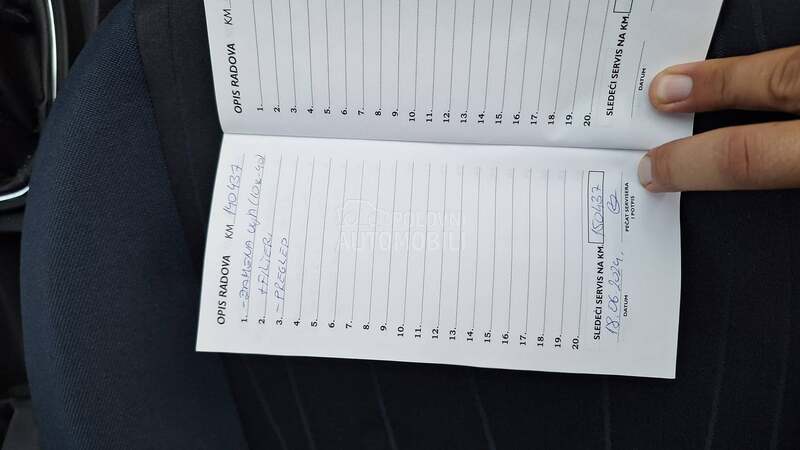 OPIS RADOVA KM
1.
2.
3.
4.
5.
6.
7.
8.
9.
10.
11.
12.
13.
14.
15.
16.
17.
18.
19.
20.
SLEDEĆI SERVIS NA KM
DATUM
OPIS RADOVA KM 140437
1. - ZAMENA ULJA (10W40)
2. + FILTERI
3. - PREGLED
4.
5.
6.
7.
8.
9.
10.
11.
12.
13.
14.
15.
16.
17.
18.
19.
20.
SLEDEĆI SERVIS NA KM 150437
18.06.2024.
DATUM PEČAT SERVISERA
I POTPIS
POLOVNI
AUTOMOBILI